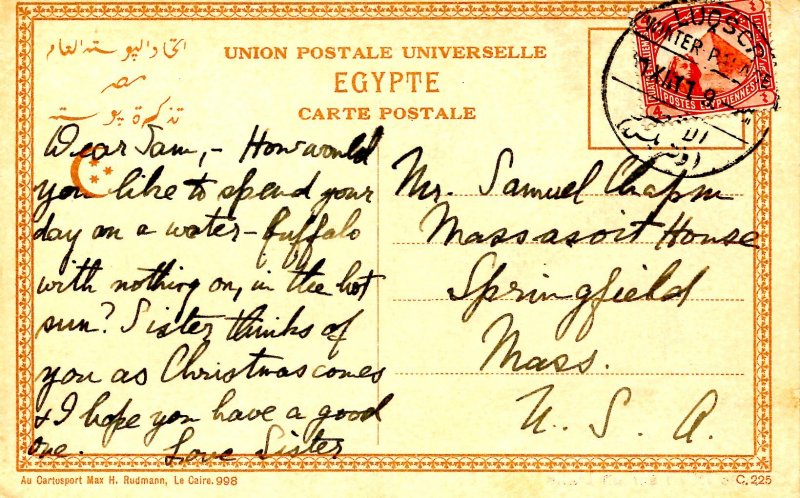 اتحاد البوسته العام
UNION POSTALE UNIVERSELLE
مصر
EGYPTE
تذكرة بوسته
CARTE POSTALE
Dear Sam, - How would
you like to spend your
day on a water-buffalo
with nothing on, in the hot
sun? Sister thinks of
you as Christmas comes
& I hope you have a good
one. Love Sister
Mr. Samuel Chapin
Massasoit House
Springfield
Mass.
U. S. A.
WINTER PALACE
POSTES EGYPTIENNES
4
Au Cartosport Max H. Rudmann, Le Caire. 998
C. 225